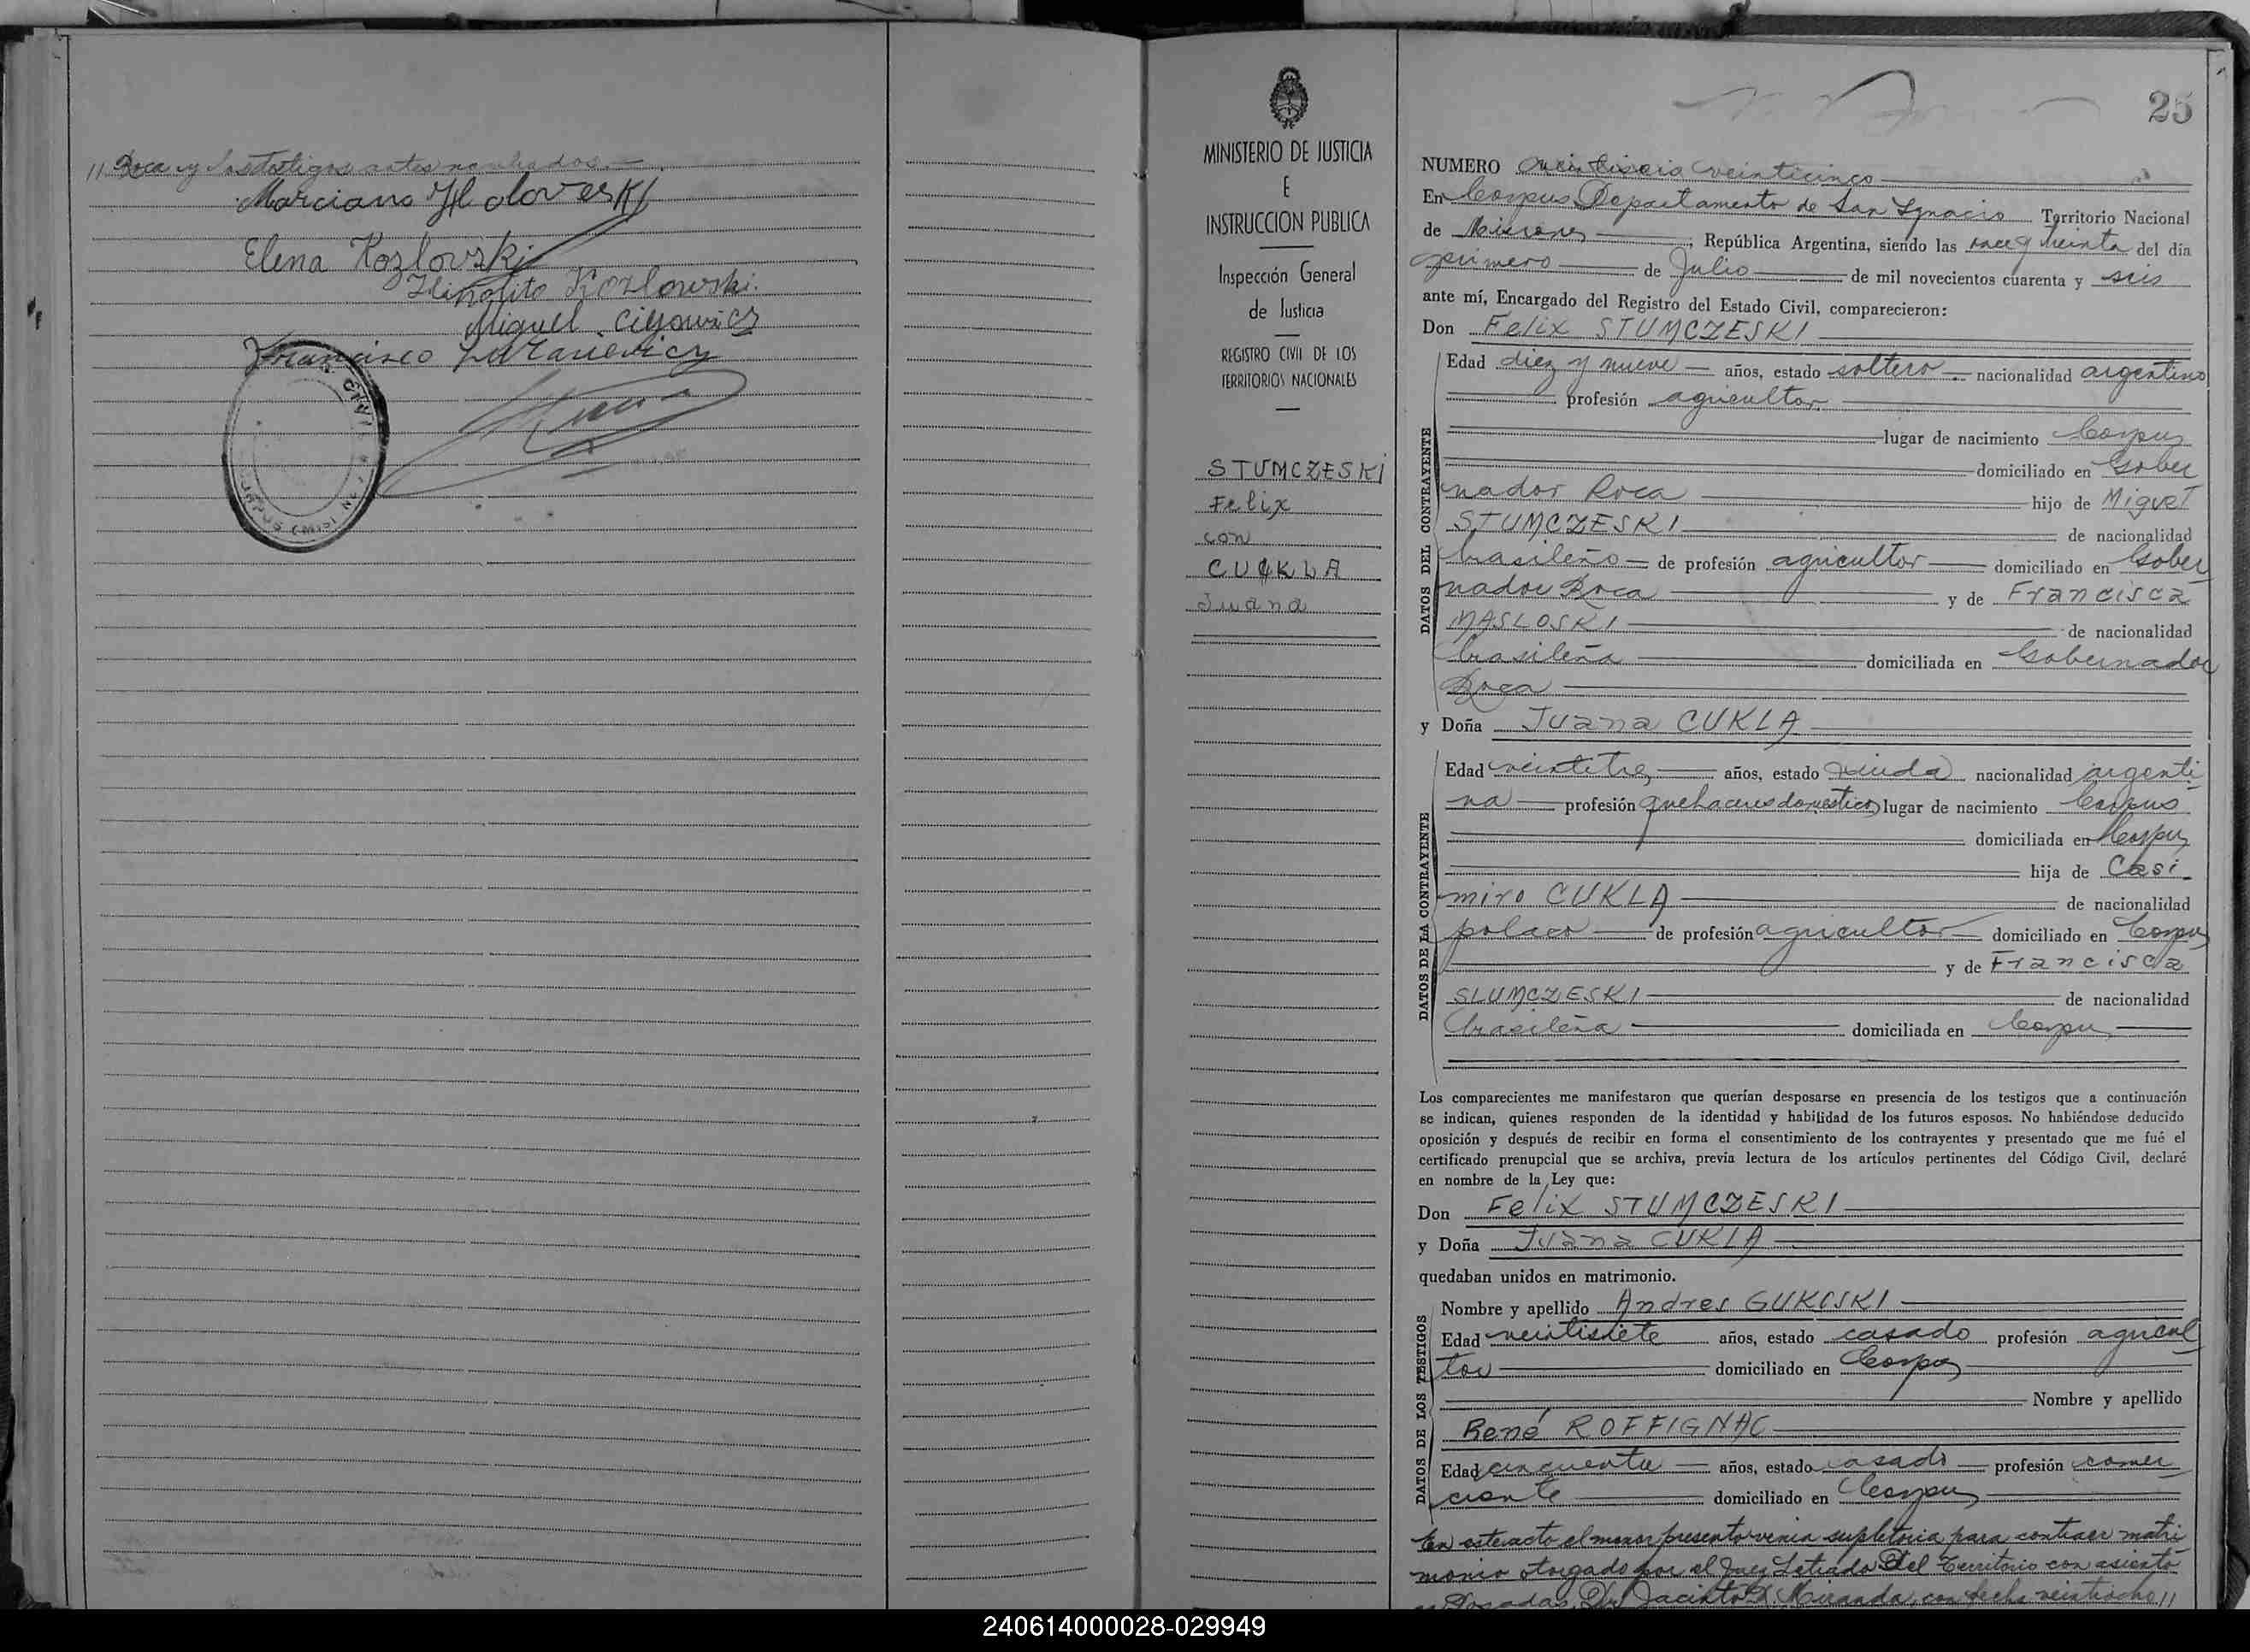 // Roca y los testigos antes nombrados.—
Marciano Holoveski
Elena Kozlovski
Hipolito Kozlowski.
Miguel
Francisco
MINISTERIO DE JUSTICIA
E
INSTRUCCION PUBLICA
Inspección General
de Justicia
REGISTRO CIVIL DE LOS
TERRITORIOS NACIONALES
STUMCZESKI
Felix
con
CUKLA
Juana
25
NUMERO veinticinco
En Corpus Departamento de San Ignacio Territorio Nacional
de Misiones, República Argentina, siendo las once y treinta del día
primero de Julio de mil novecientos cuarenta y seis
ante mí, Encargado del Registro del Estado Civil, comparecieron:
Don Felix STUMCZESKI
DATOS DEL CONTRAYENTE
Edad diez y nueve años, estado soltero nacionalidad argentino
profesión agricultor
lugar de nacimiento Corpus
domiciliado en Gober
nador Roca hijo de Miguel
STUMCZESKI de nacionalidad
brasileño de profesión agricultor domiciliado en Gober
nador Roca y de Francisca
MASLOSKI de nacionalidad
brasileña domiciliada en Gobernador
Roca
y Doña Juana CUKLA
DATOS DE LA CONTRAYENTE
Edad veintitres años, estado viuda nacionalidad argenti
na profesión quehaceres domesticos lugar de nacimiento Corpus
domiciliada en Corpus
hija de Casi-
miro CUKLA de nacionalidad
polaco de profesión agricultor domiciliado en Corpus
y de Francisca
SLUMCZESKI de nacionalidad
brasileña domiciliada en Corpus
Los comparecientes me manifestaron que querían desposarse en presencia de los testigos que a continuación
se indican, quienes responden de la identidad y habilidad de los futuros esposos. No habiéndose deducido
oposición y después de recibir en forma el consentimiento de los contrayentes y presentado que me fué el
certificado prenupcial que se archiva, previa lectura de los artículos pertinentes del Código Civil, declaré
en nombre de la Ley que:
Don Felix STUMCZESKI
y Doña Juana CUKLA
quedaban unidos en matrimonio.
DATOS DE LOS TESTIGOS
Nombre y apellido Andres
Edad veintisiete años, estado casado profesión agricul
tor domiciliado en Corpus
Nombre y apellido
René ROFFIGNAC
Edad cincuenta años, estado casado profesión comer
ciante domiciliado en Corpus
En este acto el menor presento venia supletoria para contraer matri
monio otorgado por el Juez Letrado del Territorio con asiento
en Posadas, Dr. Jacinto Miranda, con fecha veintiocho //
240614000028-029949